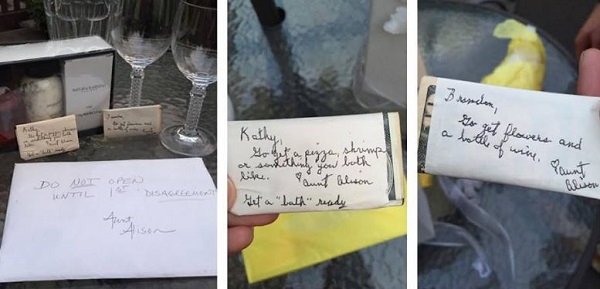 Kathy,
DO NOT OPEN
UNTIL 1ST "DISAGREEMENT"
Aunt
Alison
Kathy,
Go get a pizza, shrimp
or something you both
like. ♡aunt Alison
Get a "bath" ready
Brandon,
Go get flowers and
a bottle of wine.
♡aunt
Alison